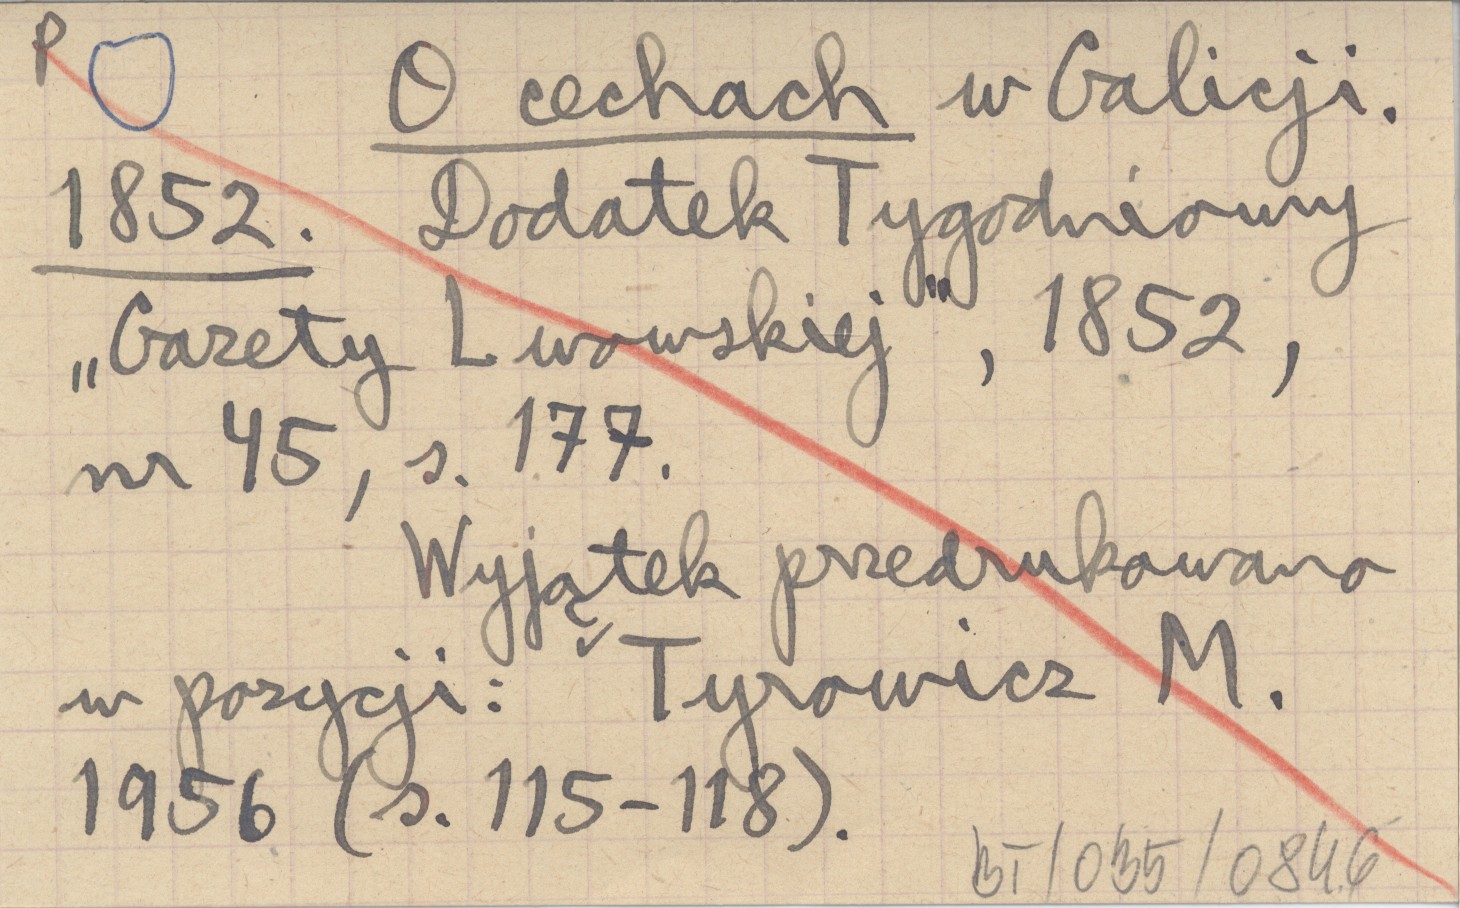 P
O cechach w Galicji.
1852. Dodatek Tygodniowy
„Gazety Lwowskiej", 1852,
nr 45, s. 177.
Wyjątek przedrukowano
w pozycji: Tyrowicz M.
1956 (s. 115-118).
BT/035/0846